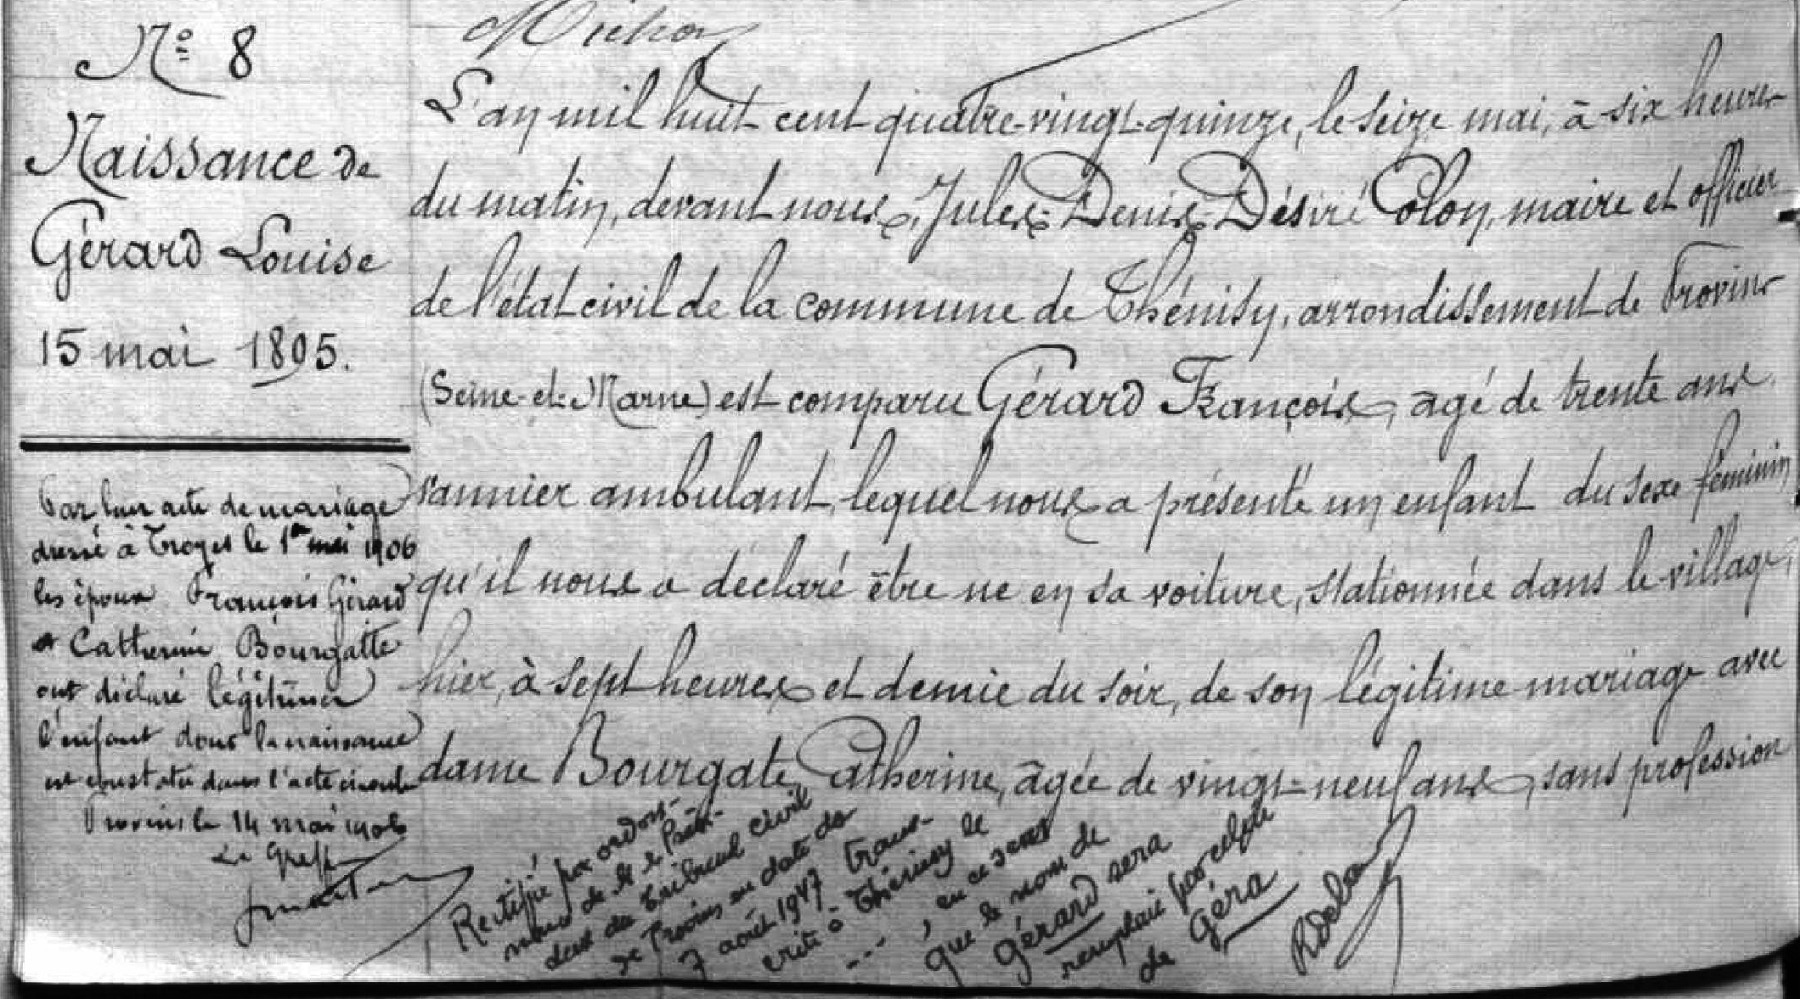 Nº 8
Naissance de
Gérard Louise
15 mai 1895.
Par leur acte de mariage
dressé à Troyes le 1er mai 1906
les époux François Gérard
et Catherine Bourgatte
ont déclaré légitimer
l'enfant dont la naissance
est constatée dans l'acte ci-contre
Provins le 14 mai 1906
Le Greff
L'an mil huit cent quatre-vingt-quinze, le seize mai, à six heures
du matin, devant nous, Jules-Denis-Désiré Colon, maire et officier
de l'état civil de la commune de Thénisy, arrondissement de Provins
(Seine-et-Marne) est comparu Gérard François, agé de trente ans
vannier ambulant, lequel nous a présenté un enfant du sexe féminin
qu'il nous a déclaré être né en sa voiture, stationnée dans le village,
hier, à sept heures et demie du soir, de son légitime mariage avec
dame Bourgate Catherine, âgée de vingt-neuf ans, sans profession
Rectifié par ordon-
nance de M. le Prési-
dent du Tribunal Civil
de Provins en date du
7 août 1947 trans-
crite à Thénisy le
--- , en ce sens
que le nom de
Gérard sera
remplacé par celui
de Géra